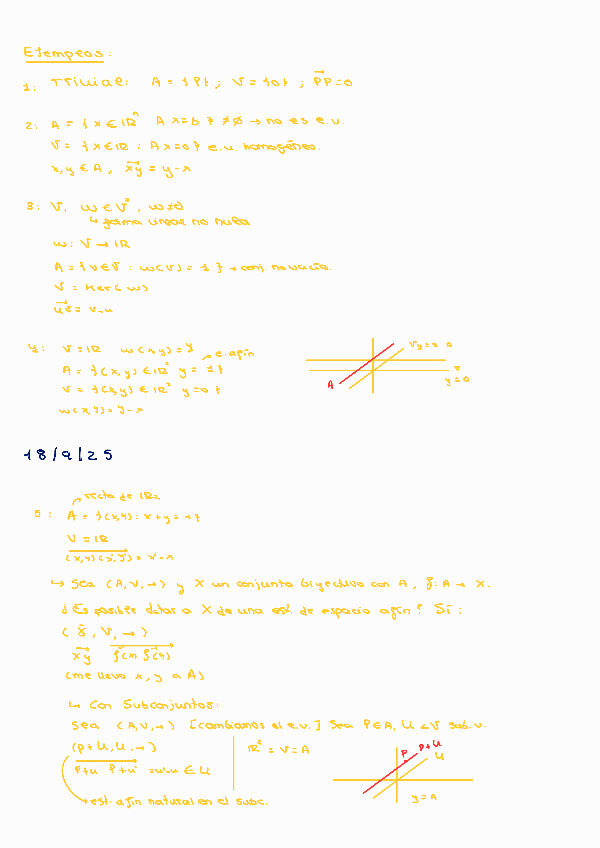 Ejemplos:
1: Trivial: A = {P}; V = {0}; PP = 0
2: A = {x ∈ ℝⁿ Ax=b} ≠ ∅ → no es e.v.
V = {x ∈ ℝ : Ax=0} e.v. homogéneo.
x,y ∈ A, xy = y-x
3: V, w ∈ V*, w≠0
↳ forma lineal no nula
w: V → ℝ
A = {v ∈ V : w(v) = 1} → conj no vacío.
V = Ker(w)
uv = v-u
4: V = ℝ w(x,y) = y
→ e. afín
A = {(x,y) ∈ ℝ² y = 1}
V = {(x,y) ∈ ℝ² y=0}
w(x,y) = y-x
A
y=0
18/9/25
recta de ℝ2
5: A = {(x,y): x+y=1}
V = ℝ
(x,y)(x',y') = x'-x
↳ Sea (A,V,→) y X un conjunto biyectivo con A, f: A → X.
¿Es posible dotar a X de una est. de espacio afín? Sí:
(X, V, →)
xy f(x) f(y)
(me llevo x, y a A)
↳ Con Subconjuntos:
Sea (A,V,→) [cambiamos el e.v.] Sea P∈A, U<V sub.v.
(P+U, U, →)
ℝ² = V = A
P+u P+u' = u'-u ∈ U
→ est. afín natural en el subc.
P P+U
U
y=A